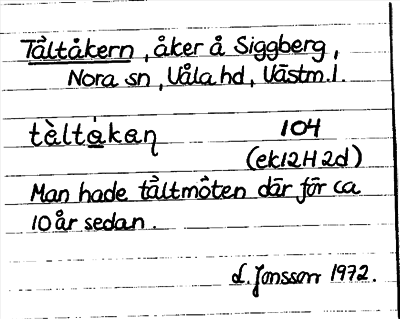 Tältåkern, åker å Siggberg,
Nora sn, Våla hd, Västm.l.
tèltá̱kaɳ 104
(ek12H2d)
Man hade tältmöten där för ca
10 år sedan.
L. Jonsson 1972.